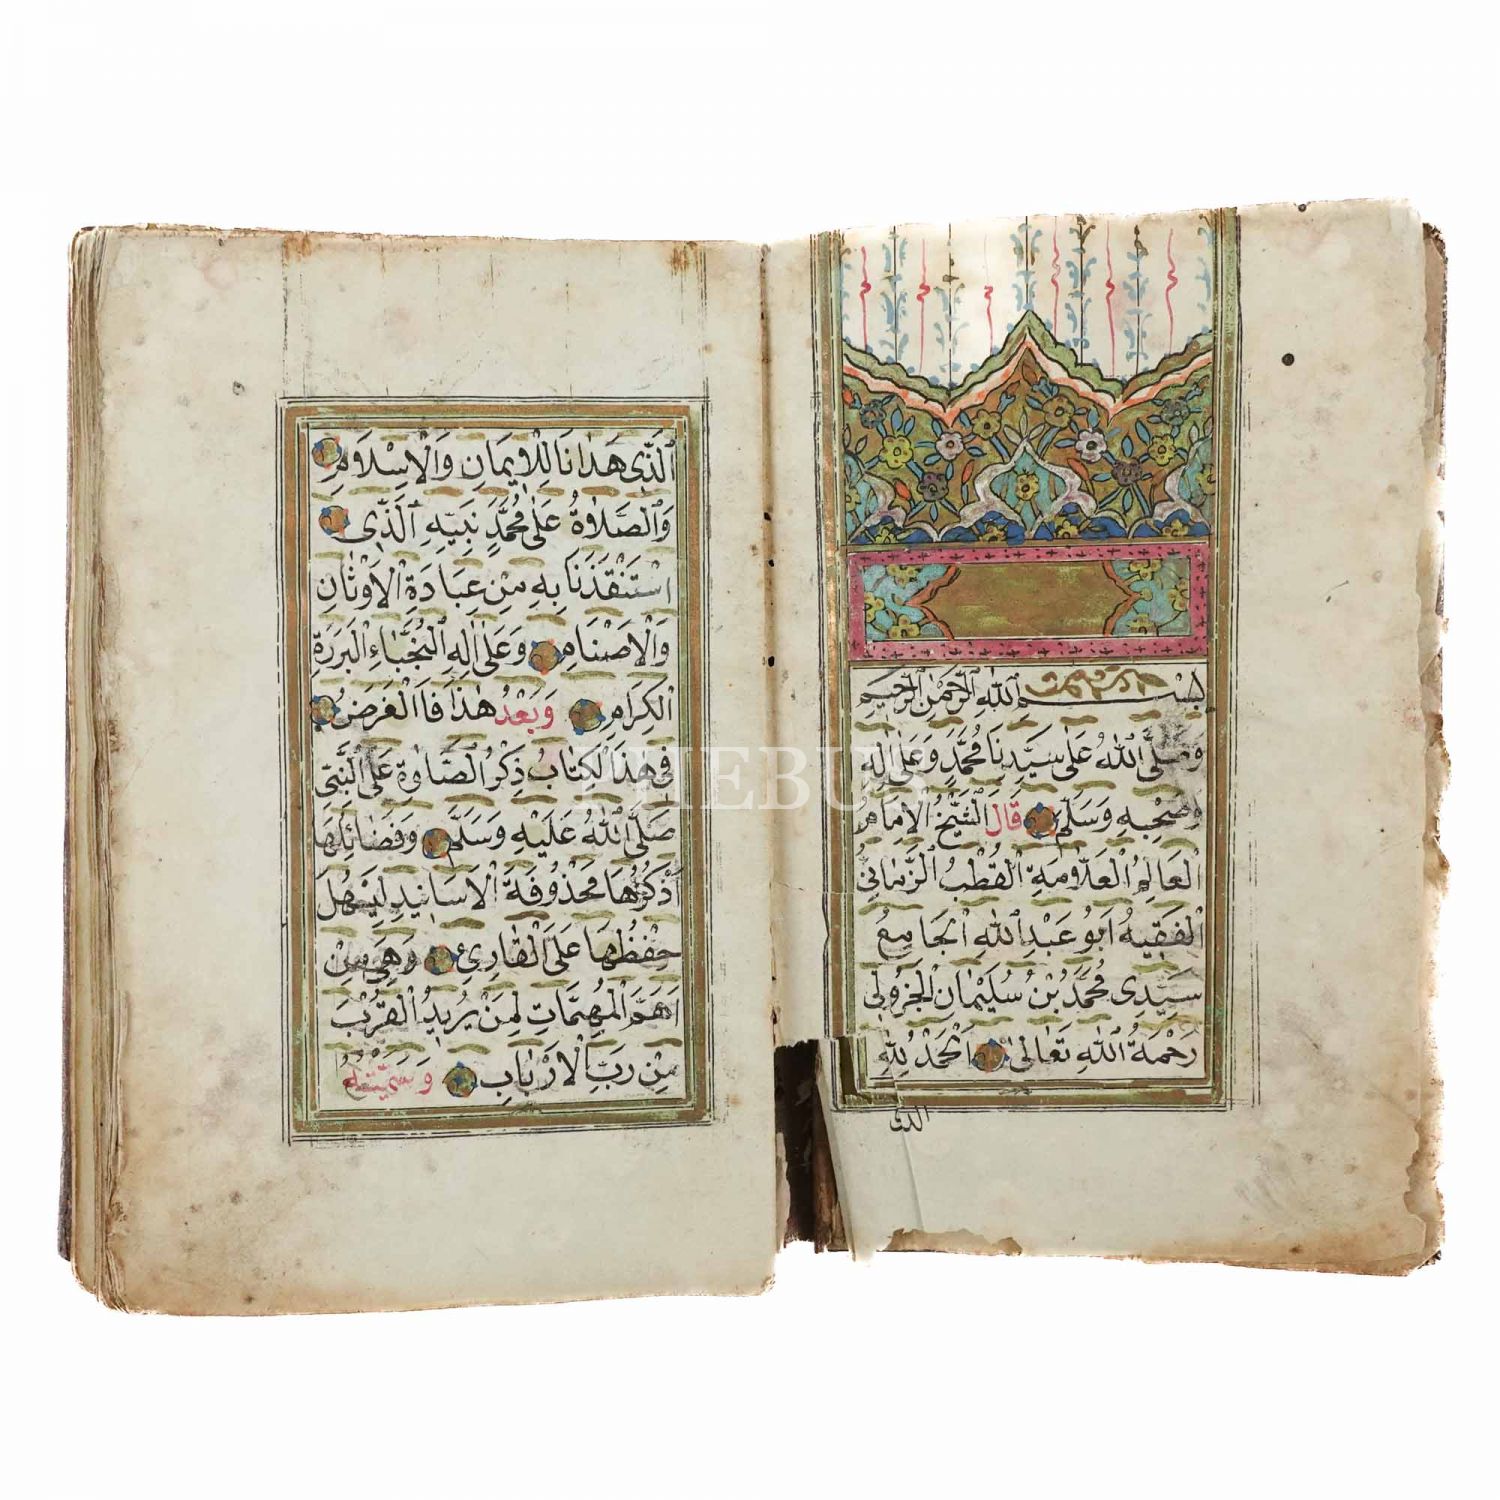 بِسْمِ اللهِ الرَّحْمٰنِ الرَّحِيمِ
وَصَلَّى اللهُ عَلٰى سَيِّدِنَا مُحَمَّدٍ وَعَلٰى اٰلِهِ
وَصَحْبِهِ وَسَلَّمَ قَالَ الشَّيْخُ الْاِمَامُ
الْعَالِمُ الْعَلَّامَةِ الْقُطْبُ الرَّبَّانِيُّ
الْفَقِيهُ اَبُو عَبْدِ اللهِ الْجَامِعُ
سَيِّدِى مُحَمَّدُ بْنُ سُلَيْمَانَ الْجَزُولِى
رَحْمَةُ اللهِ تَعَالٰى اَلْحَمْدُ لِلّٰهِ
الذى
اَلَّذِى هَدَانَا لِلْاِيمَانِ وَالْاِسْلَامِ
وَالصَّلٰوةُ عَلٰى مُحَمَّدٍ نَبِيِّهِ الَّذِى
اسْتَنْقَذَنَا بِهِ مِنْ عِبَادَةِ الْاَوْثَانِ
وَالْاَصْنَامِ وَعَلٰى اٰلِهِ النُّجَبَاءِ الْبَرَرَةِ
الْكِرَامِ وَبَعْدُ هٰذَا فَاالْغَرَضُ
فِى هٰذَا الْكِتَابِ ذِكْرُ الصَّلٰوةِ عَلَى النَّبِيِّ
صَلَّى اللهُ عَلَيْهِ وَسَلَّمَ وَفَضَائِلِهَا
اَذْكُرُهَا مَحْذُوفَةَ الْاَسَانِيدِ لِيَسْهُلَ
حِفْظُهَا عَلَى الْقَارِئِ وَهِىَ مِنْ
اَهَمِّ الْمُهِمَّاتِ لِمَنْ يُرِيدُ الْقُرْبَ
مِنْ رَبِّ الْاَرْبَابِ وَسَمَّيْتُهُ
PHEBUS